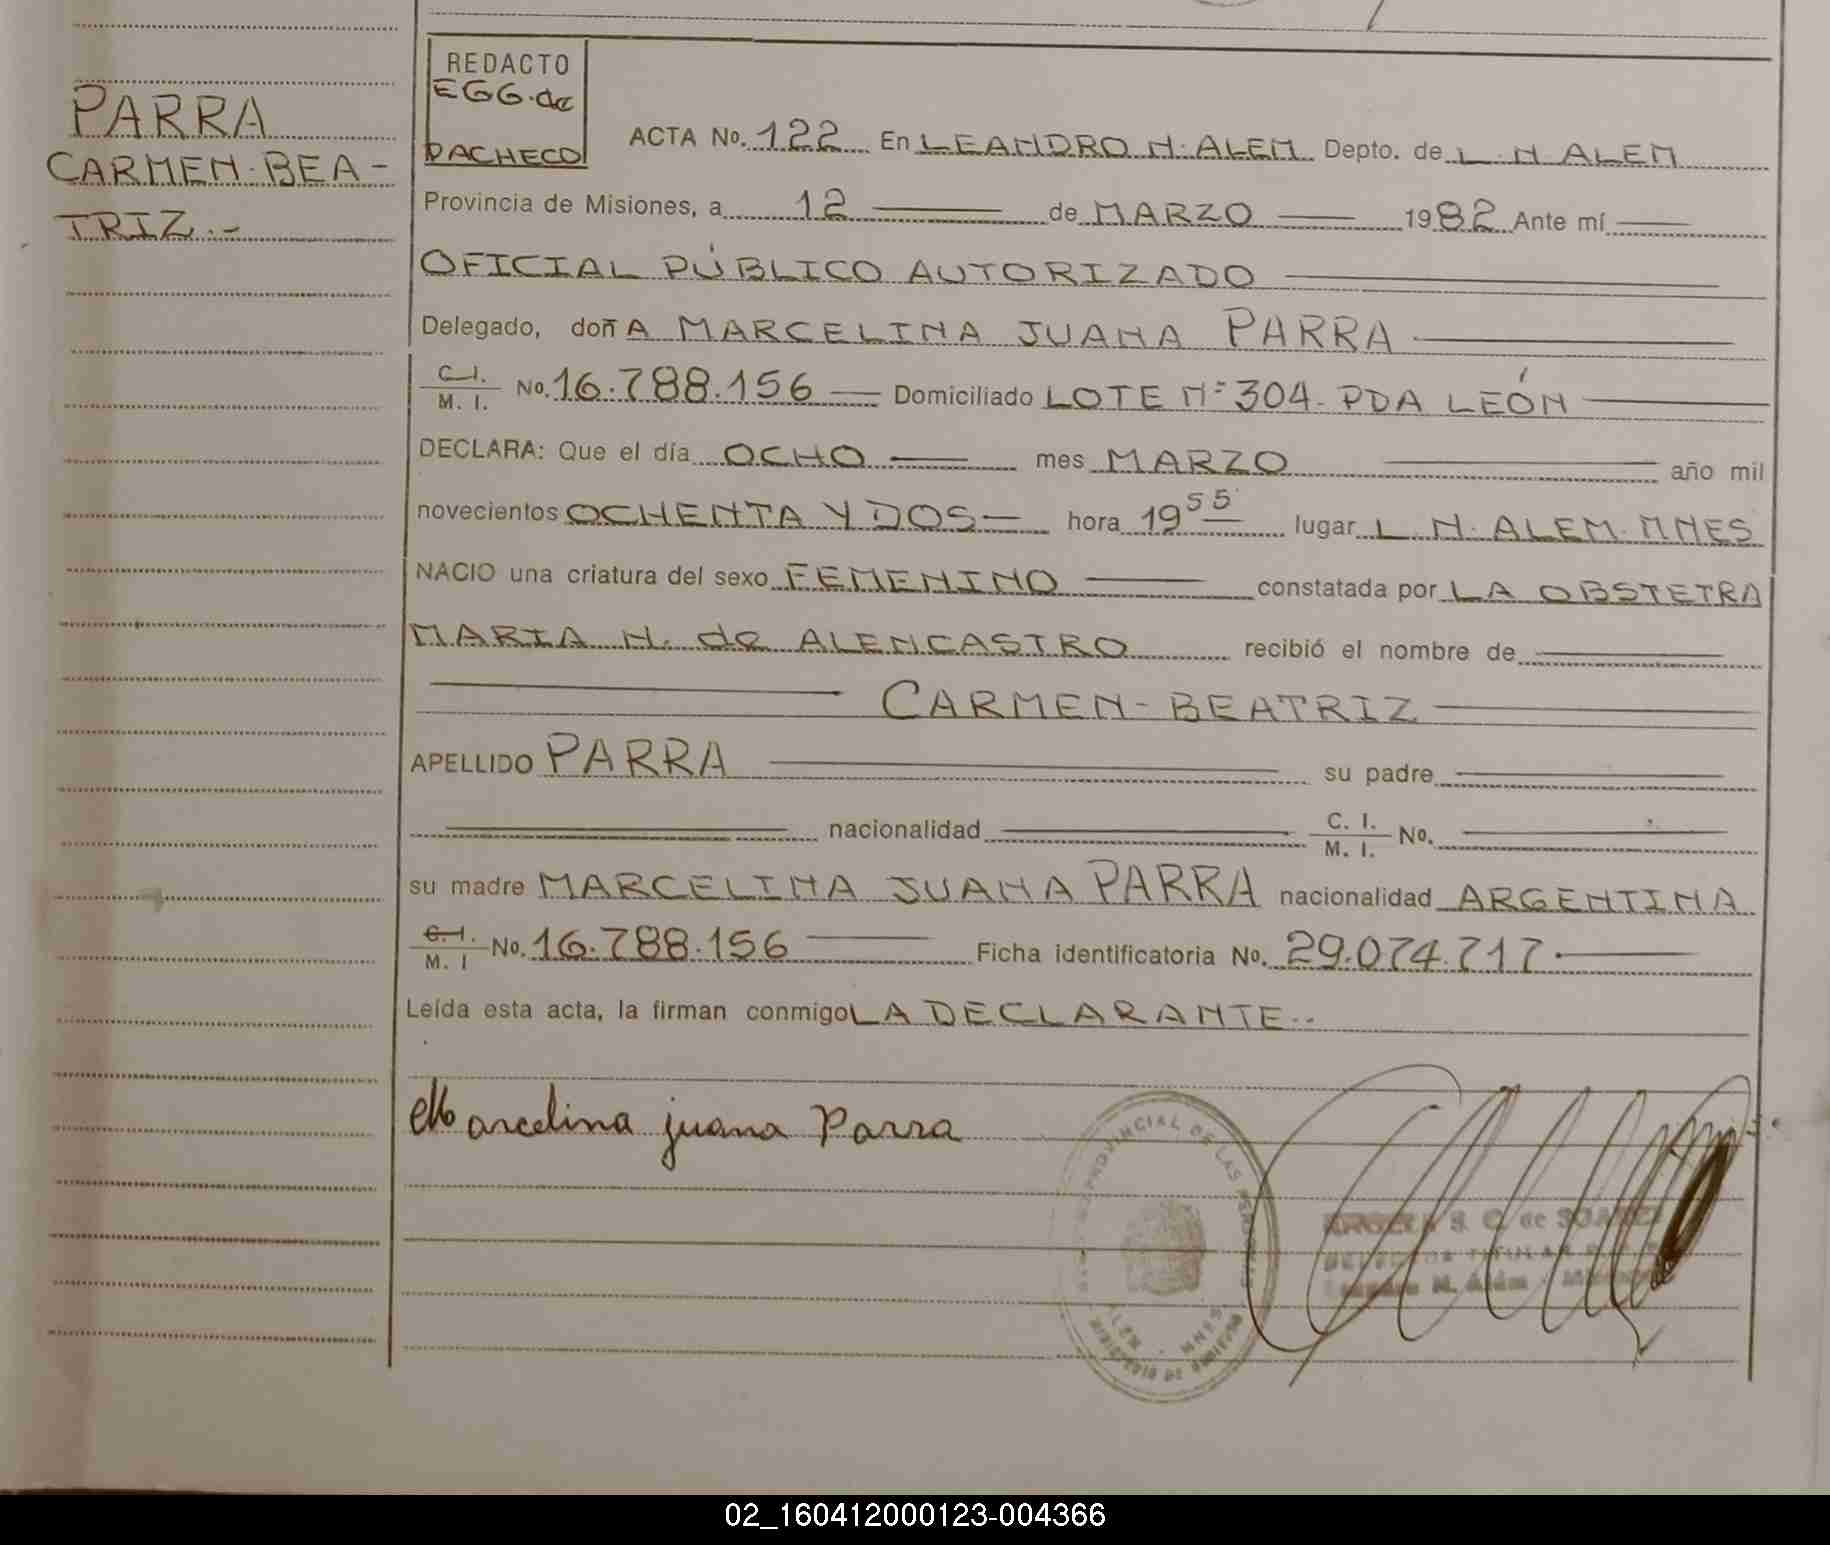 PARRA
CARMEN-BEA-
TRIZ.-
REDACTO
EGG.de
PACHECO
ACTA No. 122 En LEANDRO N. ALEM Depto. de L. N ALEM
Provincia de Misiones, a 12 de MARZO 1982 Ante mí
OFICIAL PÚBLICO AUTORIZADO
Delegado, doñA MARCELINA JUANA PARRA
C.I. M. I. No. 16.788.156 Domiciliado LOTE Nº 304. PDA LEÓN
DECLARA: Que el día OCHO mes MARZO año mil
novecientos OCHENTA Y DOS hora 19 55 lugar L N. ALEM. MNES
NACIO una criatura del sexo FEMENINO constatada por LA OBSTETRA
MARIA N. de ALENCASTRO recibió el nombre de
CARMEN-BEATRIZ
APELLIDO PARRA su padre
nacionalidad C. I. M. I. No.
su madre MARCELINA JUANA PARRA nacionalidad ARGENTINA
C.I. M. I No. 16.788.156 Ficha identificatoria No. 29.074.717.
Leída esta acta, la firman conmigo LA DECLARANTE..
Marcelina juana Parra
PROVINCIAL DE LAS PERSONAS
S. C. de SUAREZ
TITULAR
N. Alem
02_160412000123-004366